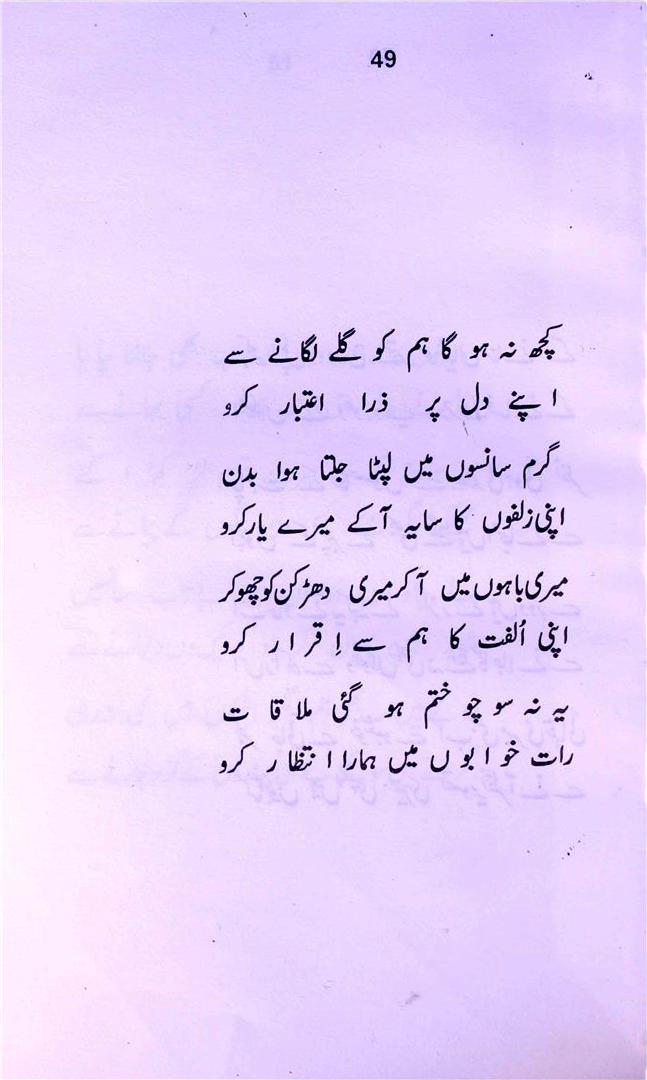 49
کچھ نہ ہو گا ہم کو گلے لگانے سے
اپنے دل پر ذرا اعتبار کرو
گرم سانسوں میں لپٹا جلتا ہوا بدن
اپنی زلفوں کا سایہ آکے میرے یار کرو
میری باہوں میں آ کر میری دھڑکن کو چھو کر
اپنی اُلفت کا ہم سے اِقرار کرو
یہ نہ سوچو ختم ہو گئی ملاقات
رات خوابوں میں ہمارا انتظار کرو